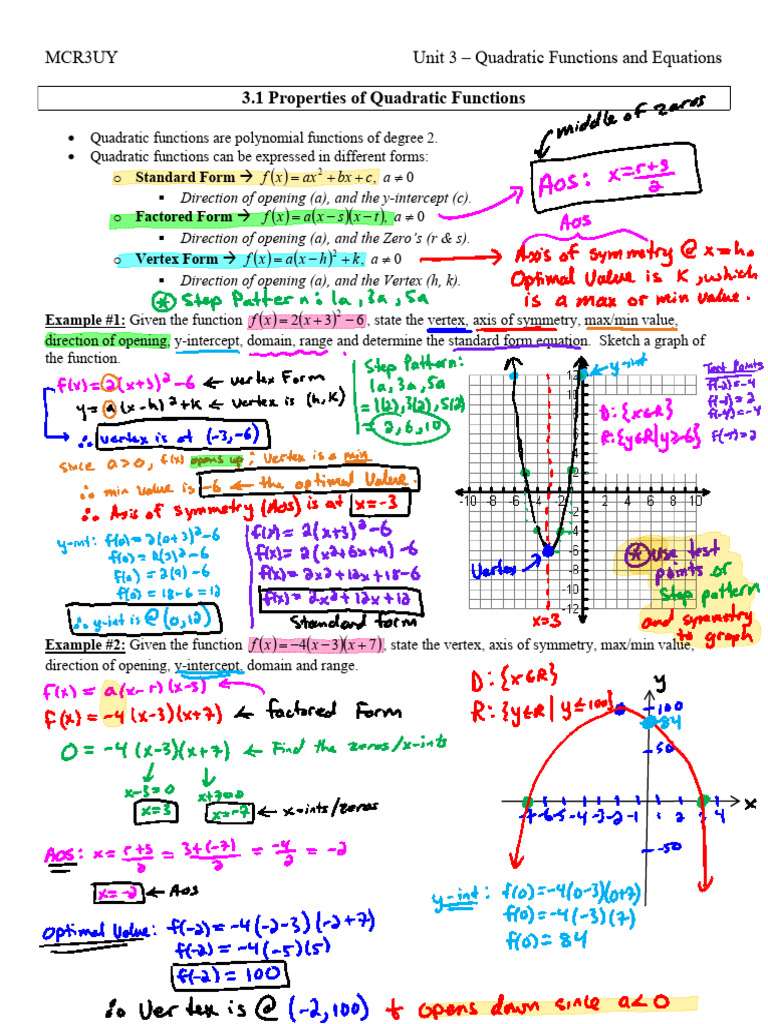 MCR3UY Unit 3 – Quadratic Functions and Equations
3.1 Properties of Quadratic Functions
middle of zeros
• Quadratic functions are polynomial functions of degree 2.
• Quadratic functions can be expressed in different forms:
o Standard Form → f(x) = ax² + bx + c, a ≠ 0
▪ Direction of opening (a), and the y-intercept (c).
AoS: x = r+s/2
o Factored Form → f(x) = a(x − s)(x − t), a ≠ 0
▪ Direction of opening (a), and the Zero's (r & s).
AoS
o Vertex Form → f(x) = a(x − h)² + k, a ≠ 0
▪ Direction of opening (a), and the Vertex (h, k).
Axis of symmetry @ x=h.
Optimal Value is K, which
is a max or min value.
⊛ Step Pattern: 1a, 3a, 5a
Example #1: Given the function f(x) = 2(x + 3)² − 6, state the vertex, axis of symmetry, max/min value,
direction of opening, y-intercept, domain, range and determine the standard form equation. Sketch a graph of
the function.
f(x) = 2(x+3)² − 6 ← vertex Form
y = a(x−h)² + k ← vertex is (h, k)
∴ vertex is at (−3, −6)
since a>0, f(x) opens up ∴ vertex is a min
∴ min value is −6 ← the optimal value.
∴ Axis of symmetry (AoS) is at x = −3
Step Pattern:
1a, 3a, 5a
= 1(2), 3(2), 5(2)
= 2, 6, 10
y-int
12
D: {x∈R}
R: {y∈R | y≥−6}
-10 -8 -6 -4 -2 2 4 6 8 10
-8
-10
-12
Vertex
x=−3
Test Points
f(−2) = −4
f(−1) = 2
f(−4) = −4
f(−5) = 2
⊛ use test
points or
step pattern
and symmetry
to graph
y-int: f(0) = 2(0+3)² − 6
f(0) = 2(3)² − 6
f(0) = 2(9) − 6
f(0) = 18 − 6 = 12
∴ y-int is @ (0, 12)
f(x) = 2(x+3)² − 6
f(x) = 2(x²+6x+9) − 6
f(x) = 2x²+12x+18−6
f(x) = 2x²+12x+12
Standard form
Example #2: Given the function f(x) = −4(x − 3)(x + 7), state the vertex, axis of symmetry, max/min value,
direction of opening, y-intercept, domain and range.
f(x) = a(x−r)(x−s)
f(x) = −4(x−3)(x+7) ← factored Form
0 = −4(x−3)(x+7) ← Find the zeros/x-ints
x−3=0 x+7=0
x=3 x=−7 ← x-ints/zeros
AoS: x = r+s/2 = 3+(−7)/2 = −4/2 = −2
x=−2 ← AoS
D: {x∈R}
R: {y∈R | y≤100}
y
100
84
50
-7 -6 -5 -4 -3 -2 -1 1 2 3 4 x
-50
y-int: f(0) = −4(0−3)(0+7)
f(0) = −4(−3)(7)
f(0) = 84
Optimal Value: f(−2) = −4(−2−3)(−2+7)
f(−2) = −4(−5)(5)
f(−2) = 100
∴ Vertex is @ (−2, 100) & opens down since a<0